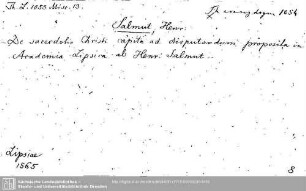 Th. L. 1055 Misc. 13.
1054
Salmut, Henr:
De sacerdotis Christi capita ad disputandum proposita in
Academia Lipsica ab Henr: Salmut.
Lipsiae
1565
8
Sächsische Landesbibliothek -
Staats- und Universitätsbibliothek Dresden